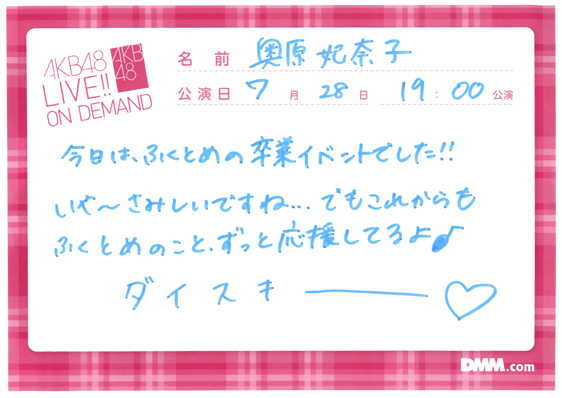 AKB48
LIVE!!
ON DEMAND
AKB
48
名前 奥原妃奈子
公演日 7月28日 19:00公演
今日は、ふくとめの卒業イベントでした!!
いや〜さみしいですね… でもこれからも
ふくとめのこと、ずっと応援してるよ♪
ダイスキ――♡
DMM.com